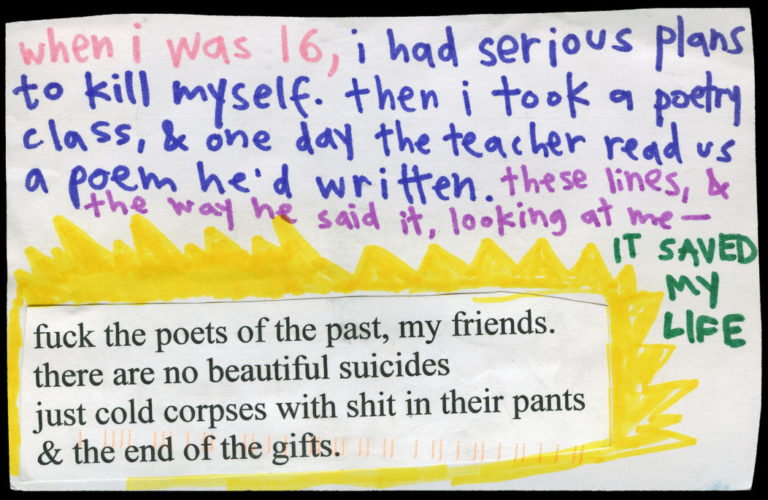 when i was 16, i had serious plans
to kill myself. then i took a poetry
class, & one day the teacher read us
a poem he'd written. these lines, &
the way he said it, looking at me—
IT SAVED
MY
LIFE
fuck the poets of the past, my friends.
there are no beautiful suicides
just cold corpses with shit in their pants
& the end of the gifts.